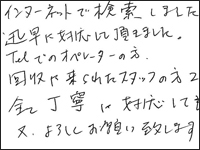 インターネットで検索しました
迅早に対応して頂きました。
Telでのオペレーターの方.
回収に来られたスタッフの方2
全て丁寧に対応しても
又、よろしくお願い致します